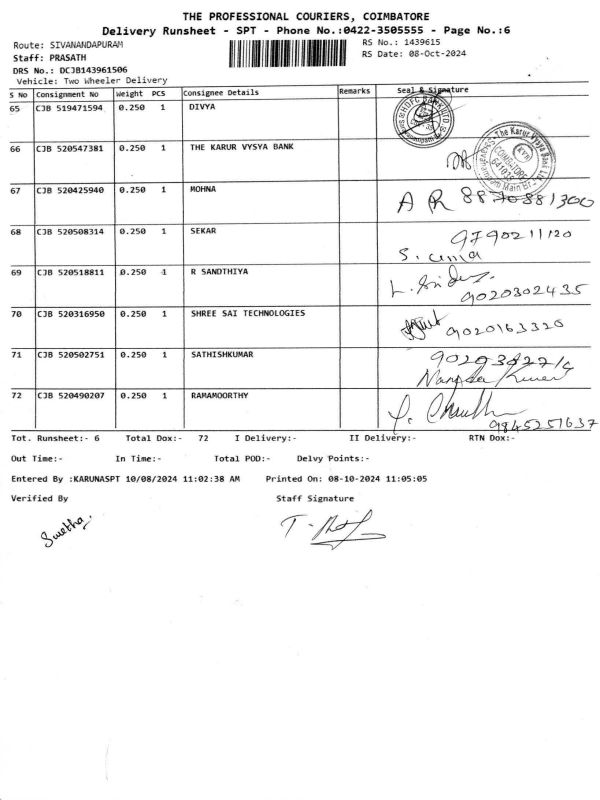 THE PROFESSIONAL COURIERS, COIMBATORE
Delivery Runsheet - SPT - Phone No.:0422-3505555 - Page No.:6
Route: SIVANANDAPURAM
RS No.: 1439615
Staff: PRASATH
RS Date: 08-Oct-2024
DRS No.: DCJB143961506
Vehicle: Two Wheeler Delivery
S No Consignment No Weight PCS Consignee Details Remarks Seal & Signature
65 CJB 519471594 0.250 1 DIVYA
HDFC BANK LTD
66 CJB 520547381 0.250 1 THE KARUR VYSYA BANK
The Karur Vysya Bank Ltd
(KVB)
COIMBATORE
641035
67 CJB 520425940 0.250 1 MOHNA
8870881300
68 CJB 520508314 0.250 1 SEKAR 9790211120
S. uma
69 CJB 520518811 0.250 1 R SANDTHIYA
9020302435
70 CJB 520316950 0.250 1 SHREE SAI TECHNOLOGIES
9020163320
71 CJB 520502751 0.250 1 SATHISHKUMAR
72 CJB 520490207 0.250 1 RAMAMOORTHY
9845251637
Tot. Runsheet:- 6 Total Dox:- 72 I Delivery:- II Delivery:- RTN Dox:-
Out Time:- In Time:- Total POD:- Delvy Points:-
Entered By :KARUNASPT 10/08/2024 11:02:38 AM Printed On: 08-10-2024 11:05:05
Verified By Staff Signature
Swetha